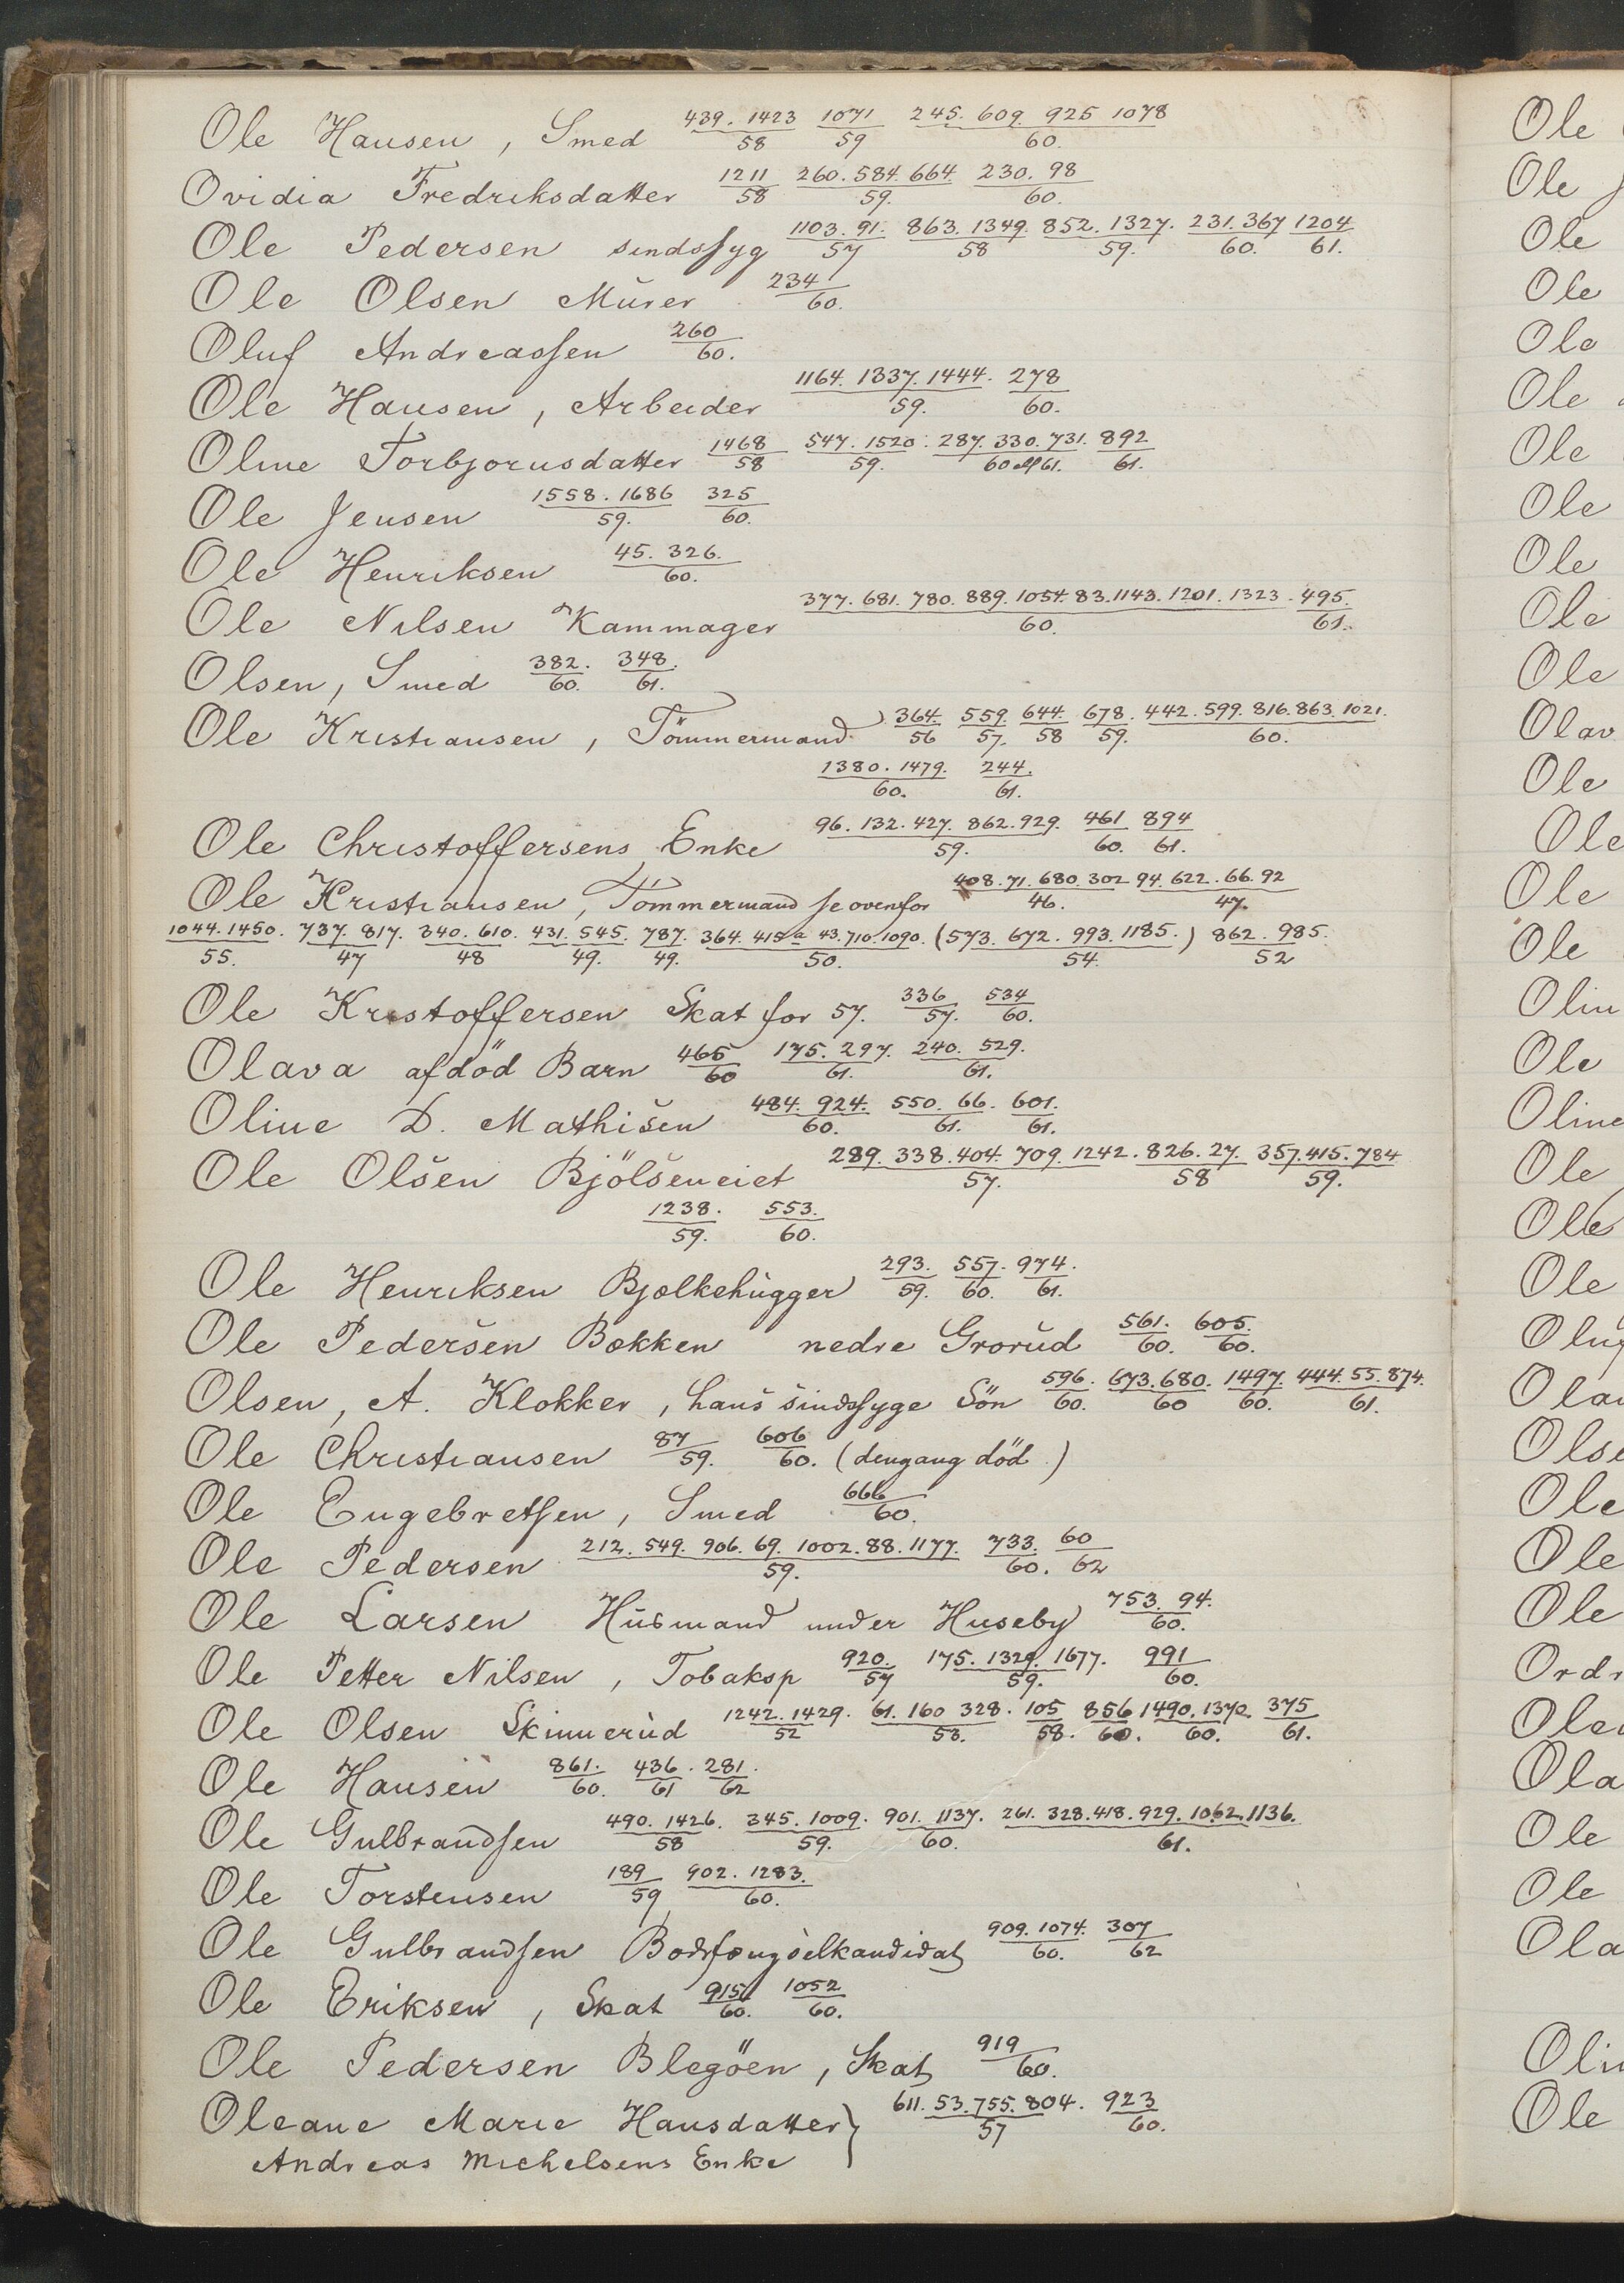 Ole Hansen, Smed 439. 1423/58 1071/59 245. 609. 925 1078/60.
Ovidia Fredriksdatter 1211/58 260. 584. 664/59. 230. 98/60.
Ole Pedersen sindssyg 1103. 91./57 863. 1349./58 852. 1327./59. 231. 367/60. 1204/61.
Ole Olsen Murer 234/60.
Oluf Andreassen 260/60.
Ole Hansen, Arbeider 1164. 1337. 1444./59. 278/60.
Oline Torbjornsdatter 1468/58 547. 1520./59. 287. 330. 731./60 61. 892/61.
Ole Jensen 1558. 1686/59. 325/60.
Ole Henriksen 45. 326./60.
Ole Nilsen Kammager 377. 681. 780. 889. 1054. 83. 1143. 1201. 1323./60. 495./61.
Olsen, Smed 382./60. 348./61.
Ole Kristiansen, Tömmermand 364./56 559./57. 644./58 678./59. 442. 599. 816. 863. 1021./60.
1380. 1479./60. 244./61.
Ole Christoffersens Enke 96. 132. 427. 862. 929./59. 461/60. 894/61.
Ole Kristiansen, Tömmermand se ovenfor 408. 71. 680. 302/46. 94. 622. 66. 92/47.
1044. 1450./55. 737. 817./47 340. 610./48 431. 545./49. 787./49. 364. 415a 43. 710. 1090./50. (573. 672. 993. 1185./54.) 862. 985./52
Ole Kristoffersen Skat for 57. 336/57. 534/60.
Olava afdöd Barn 465/60 175. 297./61. 240. 529./61.
Oline D. Mathisen 484. 924./60. 550. 66./61. 601./61.
Ole Olsen Bjölseneiet 289. 338. 404. 709. 1242./57. 826. 27./58 357. 415. 784/59.
1238./59. 553./60.
Ole Henriksen Bjælkehugger 293./59. 557./60. 974./61.
Ole Pedersen Bakken nedre Grorud 561./60. 605./60.
Olsen, A. Klokker, hans sindssyge Sön 596./60. 673. 680./60 1497./60. 444. 55. 874./61.
Ole Christiansen 87/59. 606/60. (dengang död)
Ole Engebretsen, Smed 666/60.
Ole Pedersen 212. 549. 906. 69. 1002. 88. 1177./59. 733./60. 60/62
Ole Larsen Husmand under Huseby 753. 94./60.
Ole Petter Nilsen, Tobaksp 920./57 175. 1329. 1677./59. 991/60.
Ole Olsen Skinnerud 1242. 1429./52 61. 160 328./58. 105/58. 856/60. 1490. 1370./60. 375/61.
Ole Hansen 861./60. 436./61 281./62
Ole Gulbrandsen 490. 1426./58 345. 1009./59. 901. 1137./60. 261. 328. 418. 929. 1062. 1136./61.
Ole Torstensen 189/59 902. 1283./60.
Ole Gulbrandsen Bodsfængselkandidat 909. 1074./60. 307/62
Ole Eriksen, Skat 915/60. 1052/60.
Ole Pedersen Blegöen, Skat 919/60.
Oleane Marie Hansdatter } 611. 53. 755. 804./57 923/60.
Andreas Michelsens Enke
Ole
Ole
Ole
Ole
Ole
Ole
Ole
Ole
Ole
Ole
Ole
Olav
Ole
Ole
Ole
Ole
Olin
Ole
Oline
Ole
Ole
Ole
Oluf
Olau
Olse
Ole
Ole
Ole
Ordr
Ole
Ola
Ole
Ole
Ola
Olin
Ole